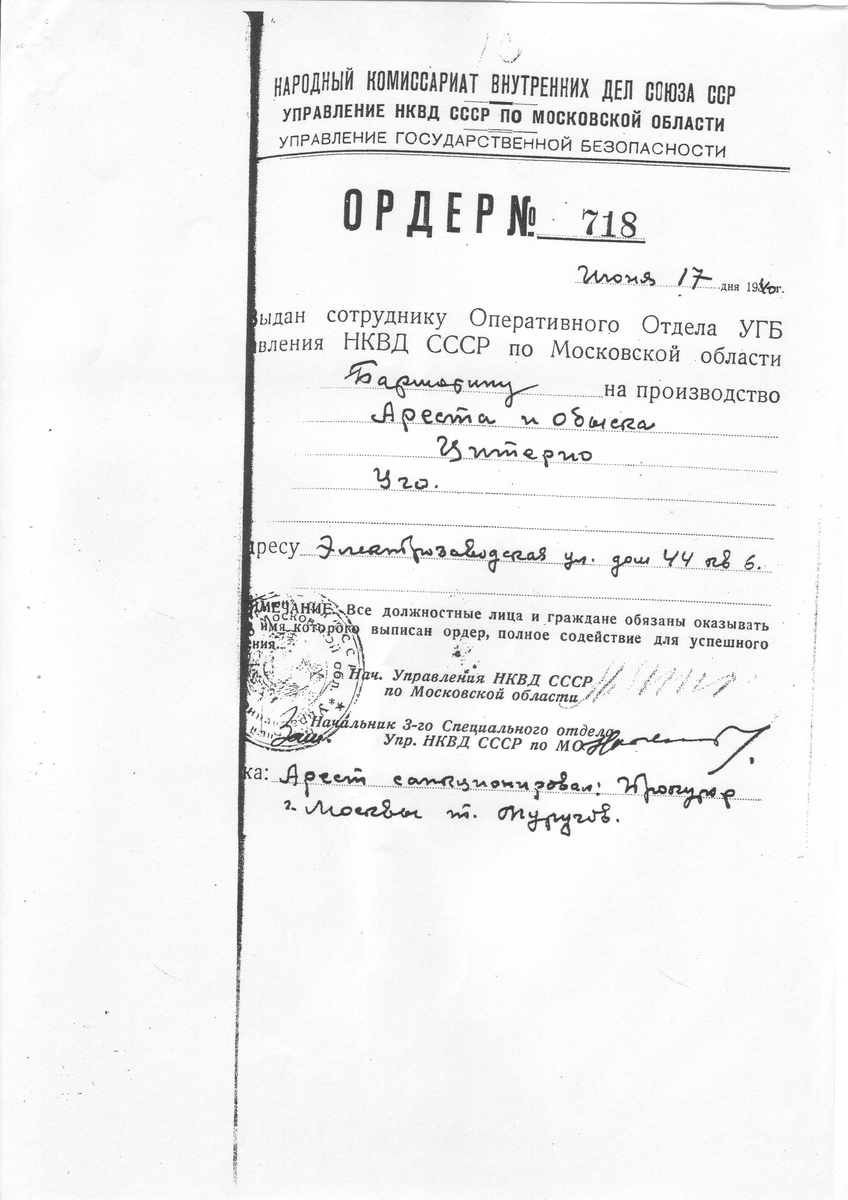 НАРОДНЫЙ КОМИССАРИАТ ВНУТРЕННИХ ДЕЛ СОЮЗА ССР
УПРАВЛЕНИЕ НКВД СССР ПО МОСКОВСКОЙ ОБЛАСТИ
УПРАВЛЕНИЕ ГОСУДАРСТВЕННОЙ БЕЗОПАСНОСТИ
ОРДЕР № 718
Июня 17 дня 1940 г.
Выдан сотруднику Оперативного Отдела УГБ
авления НКВД СССР по Московской области
на производство
Ареста и Обыска
Цитерно
Уго.
дресу Электрозаводская ул. дом 44 кв 6.
ИМЕЧАНИЕ: Все должностные лица и граждане обязаны оказывать
имя которого выписан ордер, полное содействие для успешного
ения.
Нач. Управления НКВД СССР
по Московской области
Начальник 3-го Специального отдела
Зам. Упр. НКВД СССР по МО
ка: Арест санкционировал: Прокурор
г. Москвы т.